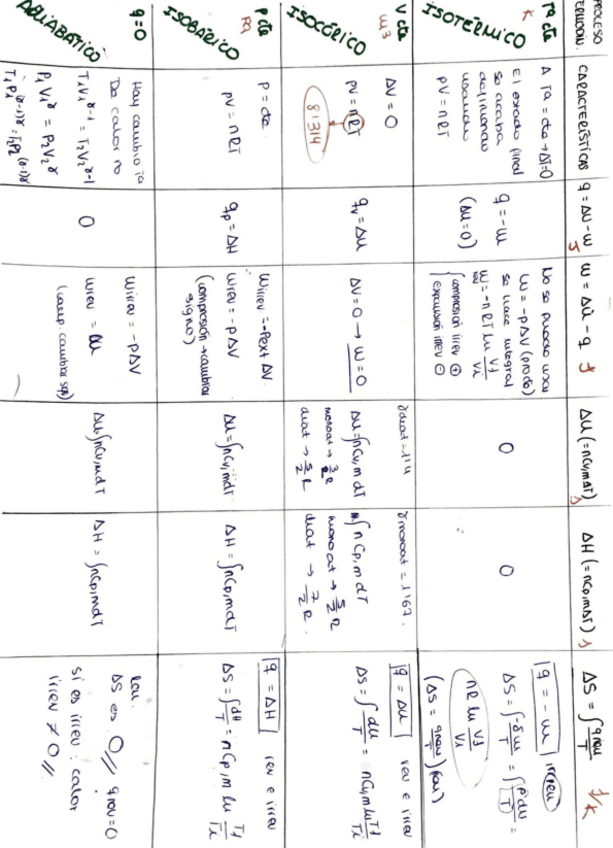 PROCESO
TERMODIN.
CARACTERÍSTICAS
q = ΔU - W
J
W = ΔU - q
J
ΔU (= nCv,mΔT)
J
ΔH (= nCp,mΔT)
J
ΔS = ∫ qrev/T
J/K
ISOTÉRMICO
Tª cte
K
A Tª = cte → ΔT=0
El estado final
se acaba
definiendo
usando
PV = nRT
q = -W
(ΔU=0)
No se puede usar
W = -PΔV
se hace integral
Wrev = -nRT ln Vf/Vi
compresión irrev ⊕
expansión irrev ⊖
0
0
q = -W
irrev
ΔS = ∫ -δW/T = ∫ PdV/T =
nR ln Vf/Vi
(ΔS = qrev/T) (rev)
ISOCÓRICO
V cte
m3
ΔV = 0
PV = nRT
8'314
qv = ΔU
ΔV = 0 → W = 0
γdiat = 1'4
ΔU = ∫nCv,m dT
monoat → 3/2 R
diat → 5/2 R
γmonoat = 1'67.
∫ n Cp,m dT
monoat → 5/2 R
diat → 7/2 R.
q = ΔU
rev e irrev
ΔS = ∫ dU/T = nCv,m ln Tf/Ti
ISOBÁRICO
P cte
Pa
P = cte.
PV = nRT
qp = ΔH
Wirrev = -Pext ΔV
Wrev = -PΔV
(compresión → cambiar
signo)
ΔU = ∫nCv,m dT
ΔH = ∫nCp,mdT
q = ΔH
rev e irrev
ΔS = ∫ dH/T = nCp,m ln Tf/Ti
ADIABÁTICO
q=0
Hay cambio Tª
De calor no
T1V1^γ-1 = T2V2^γ-1
P1V1^γ = P2V2^γ
0
Wirrev = -PΔV
Wrev = ΔU
(comp. cambiar sg)
ΔU = ∫nCv,mdT
ΔH = ∫nCp,mdT
rev.
ΔS es 0 // qrev=0
si es irrev: calor
irrev ≠ 0 //